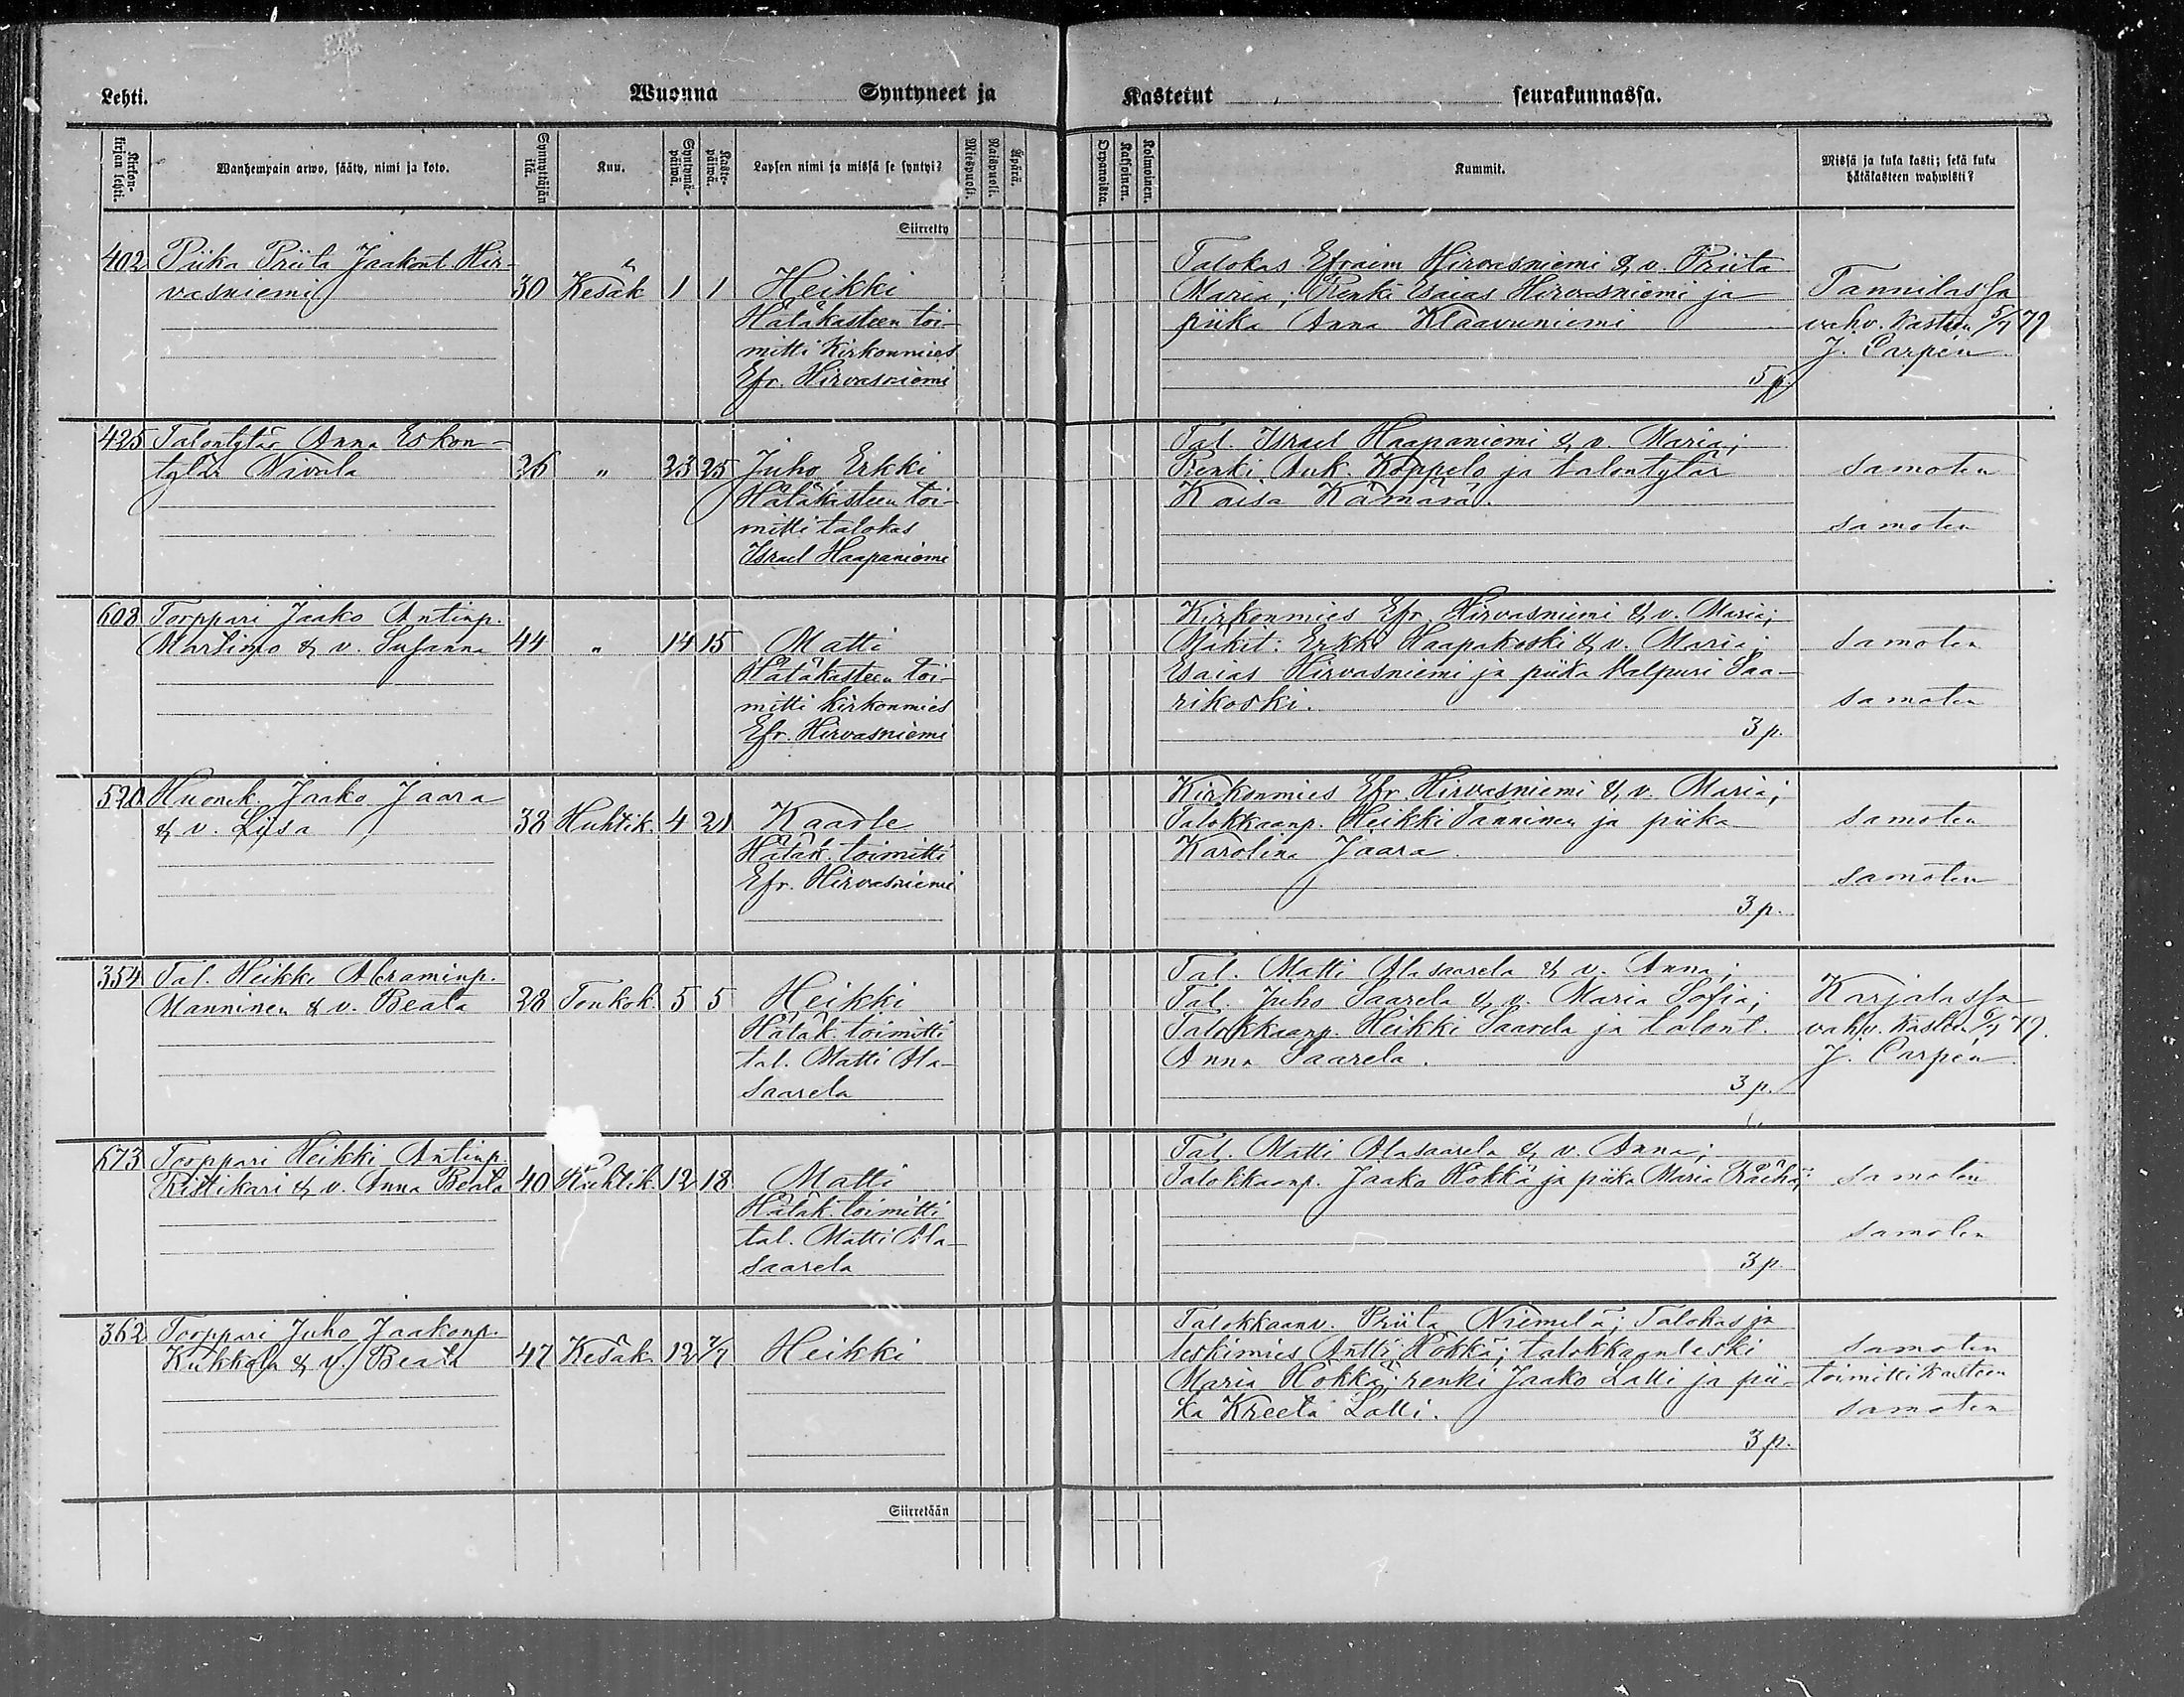 Lehti. Wuonna Syntyneet ja Kastetut seurakunnassa.
Kirkonkirjan lehti. Wanhempain arwo, sääty, nimi ja koto. Synnyttäjän ikä. Kuu. Syntymäpäiwä. Kastepäiwä. Lapsen nimi ja missä se syntyi? Miespuoli. Naispuoli. Äpärä. Orpanoista. Kaksoinen. Kolmoinen. Kummit. Missä ja kuka kasti; sekä kuka hätäkasteen wahwisti?
Siirretty
402 Piika Priita Jaakont. Hir-
vasniemi 30 Kesäk 1 1 Heikki
Hätäkasteen toi-
mitti Kirkonmies
Efr. Hirvasniemi
Talokas Efraim Hirvasniemi & v. Priita
Maria; Renki Esaias Hirvasniemi ja
piika Anna Klaavuniemi
5 p.
Tannilassa
vahv. kasteen 5/7 79
J. Carpén
425 Talontytär Anna Eskon-
tytär Nivala 26 " 23 25 Juho Erkki
Hätäkasteen toi-
mitti talokas
Israel Haapaniemi
Tal. Israel Haapaniemi & v. Maria;
Renki Auk. Koppelo ja talontytär
Kaisa Kämärä.
samoten
samoten
608 Torppari Jaako Antinp.
Martimo & v. Susanna 44 " 14 15 Matti
Hätäkasteen toi-
mitti kirkonmies
Efr. Hirvasniemi
Kirkonmies Efr. Hirvasniemi & v. Maria;
Mäkit. Erkki Haapakoski & v. Maria
Esaias Hirvasniemi ja piika Valpuri Saa-
rikoski.
3 p.
samoten
samoten
520 Huonek. Jaako Jaara
& v. Liisa 38 Huhtik. 4 21 Kaarle
Hätäk. toimitti
Efr. Hirvasniemi
Kirkonmies Efr. Hirvasniemi & v. Maria;
Talokkaanp. Heikki Tanninen ja piika
Karolina Jaara.
3 p.
samoten
samoten
354 Tal. Heikki Abraminp.
Manninen & v. Beata 28 Toukok. 5 5 Heikki
Hätäk. toimitti
tal. Matti Ala-
saarela
Tal. Matti Alasaarela & v. Anna;
Tal. Juho Saarela & v. Maria Sofia;
Talokkaanp. Heikki Saarela ja talont.
Anna Saarela.
3 p.
Karjalassa
vahv. kasteen /7 79.
J. Carpén
673 Torppari Heikki Antinp.
Ristikari & v. Anna Beata 40 Huhtik. 12 18 Matti
Hätäk. toimitti
tal. Matti Ala-
saarela
Tal. Matti Alasaarela & v. Anna;
Talokkaanp. Jaako Hökkä ja piika Maria Räihä;
3 p.
samoten
samoten
362 Torppari Juho Jaakonp.
Kukkola & v. Beata 47 Kesäk. 12 7/7 Heikki
Talokkaanv. Priita Niemelä; Talokas ja
leskimies Antti Hökkä; talokkaanleski
Maria Hökkä; renki Jaako Latti ja pii-
ka Kreeta Latti.
3 p.
samoten
toimitti kasteen
samoten
Siirretään